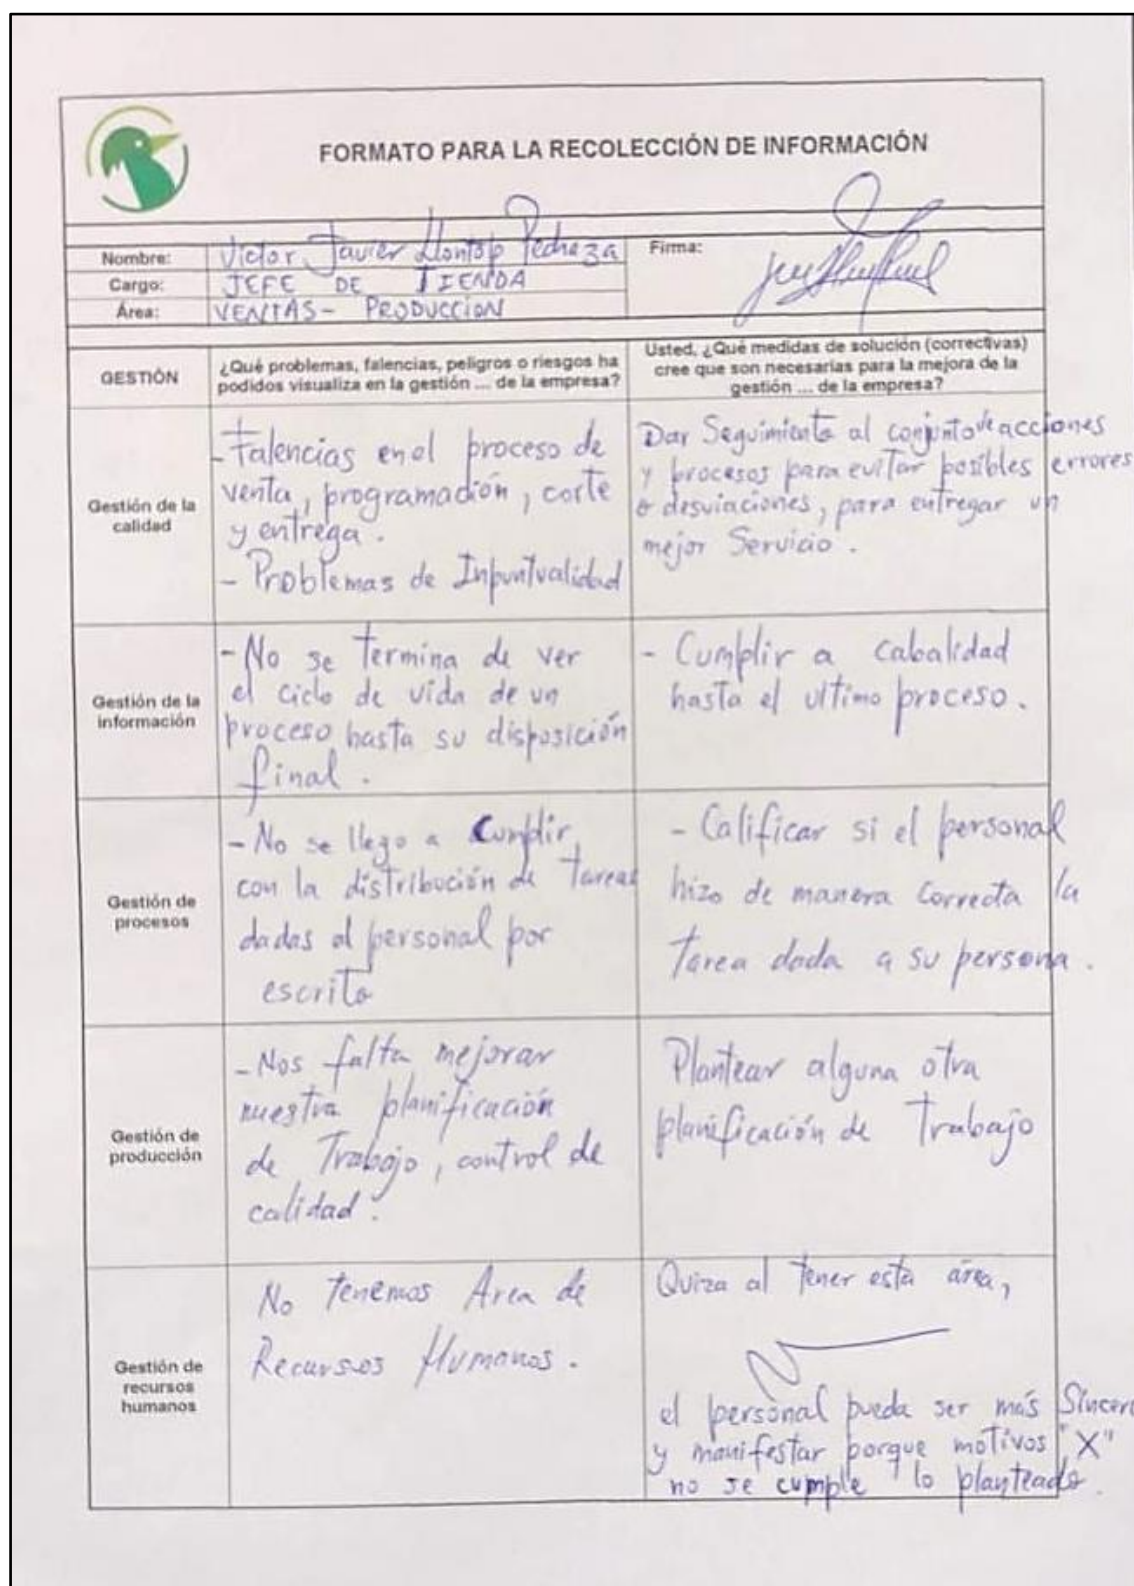 FORMATO PARA LA RECOLECCIÓN DE INFORMACIÓN
Nombre: Victor Javier Llontop Pedraza
Firma:
Cargo: JEFE DE TIENDA
Área: VENTAS- PRODUCCION
GESTIÓN
¿Qué problemas, falencias, peligros o riesgos ha
podidos visualiza en la gestión ... de la empresa?
Usted, ¿Qué medidas de solución (correctivas)
cree que son necesarias para la mejora de la
gestión ... de la empresa?
Gestión de la
calidad
- Falencias en el proceso de
venta, programación, corte
y entrega.
- Problemas de Inpuntualidad
Dar Seguimiento al conjunto de acciones
y procesos para evitar posibles errores
o desviaciones, para entregar un
mejor Servicio.
Gestión de la
información
- No se termina de ver
el ciclo de vida de un
proceso hasta su disposición
final.
- Cumplir a cabalidad
hasta el ultimo proceso.
Gestión de
procesos
- No se llego a Cumplir
con la distribución de tareas
dadas al personal por
escrito
- Calificar si el personal
hizo de manera correcta la
tarea dada a su persona.
Gestión de
producción
- Nos falta mejorar
nuestra planificación
de Trabajo, control de
calidad.
Plantear alguna otra
planificación de Trabajo
Gestión de
recursos
humanos
No Tenemos Area de
Recursos Humanos.
Quiza al tener esta área,
el personal pueda ser más Sincero
y manifestar porque motivos "X"
no se cumple lo planteado.